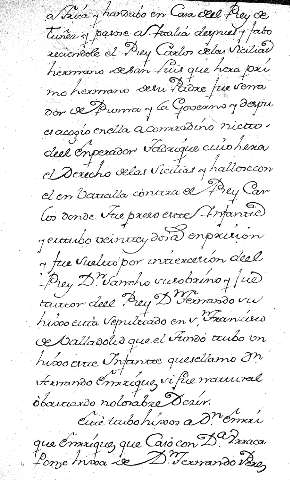 a Africa y handubo en Casa del Rey de
tuñez y pasose a Italia despues y fabo
reciendole el Rey Carlos de las Sicilias
hermano de san Luis que hera pri
mo hermano de su Padre fue Sena
dor de Rroma y la Governo y despu
es acogio en ella a Conradino nieto
del enperador Fadrique cuio hera
el Derecho de las Sicilias y hallose con
el en Batalla contra el Rey Car
los donde fue preso este Infante
y estubo veinte y dos as en prision
y fue suelto por intercesion del
Rey Dn Sancho su sobrino y fue
tutor del Rey Dn Fernando su
hijo esta sepultado en Sn Francisco
de Balladolid que el fundo tubo un
hijo este Infante que llamo Dn
Fernando Enrriquez si fue natural
o bastardo no lo sabre Desir.
Este tubo hijos a Dn Enrri
que Enrriquez que Caso con Da
hija de Dn Fernando